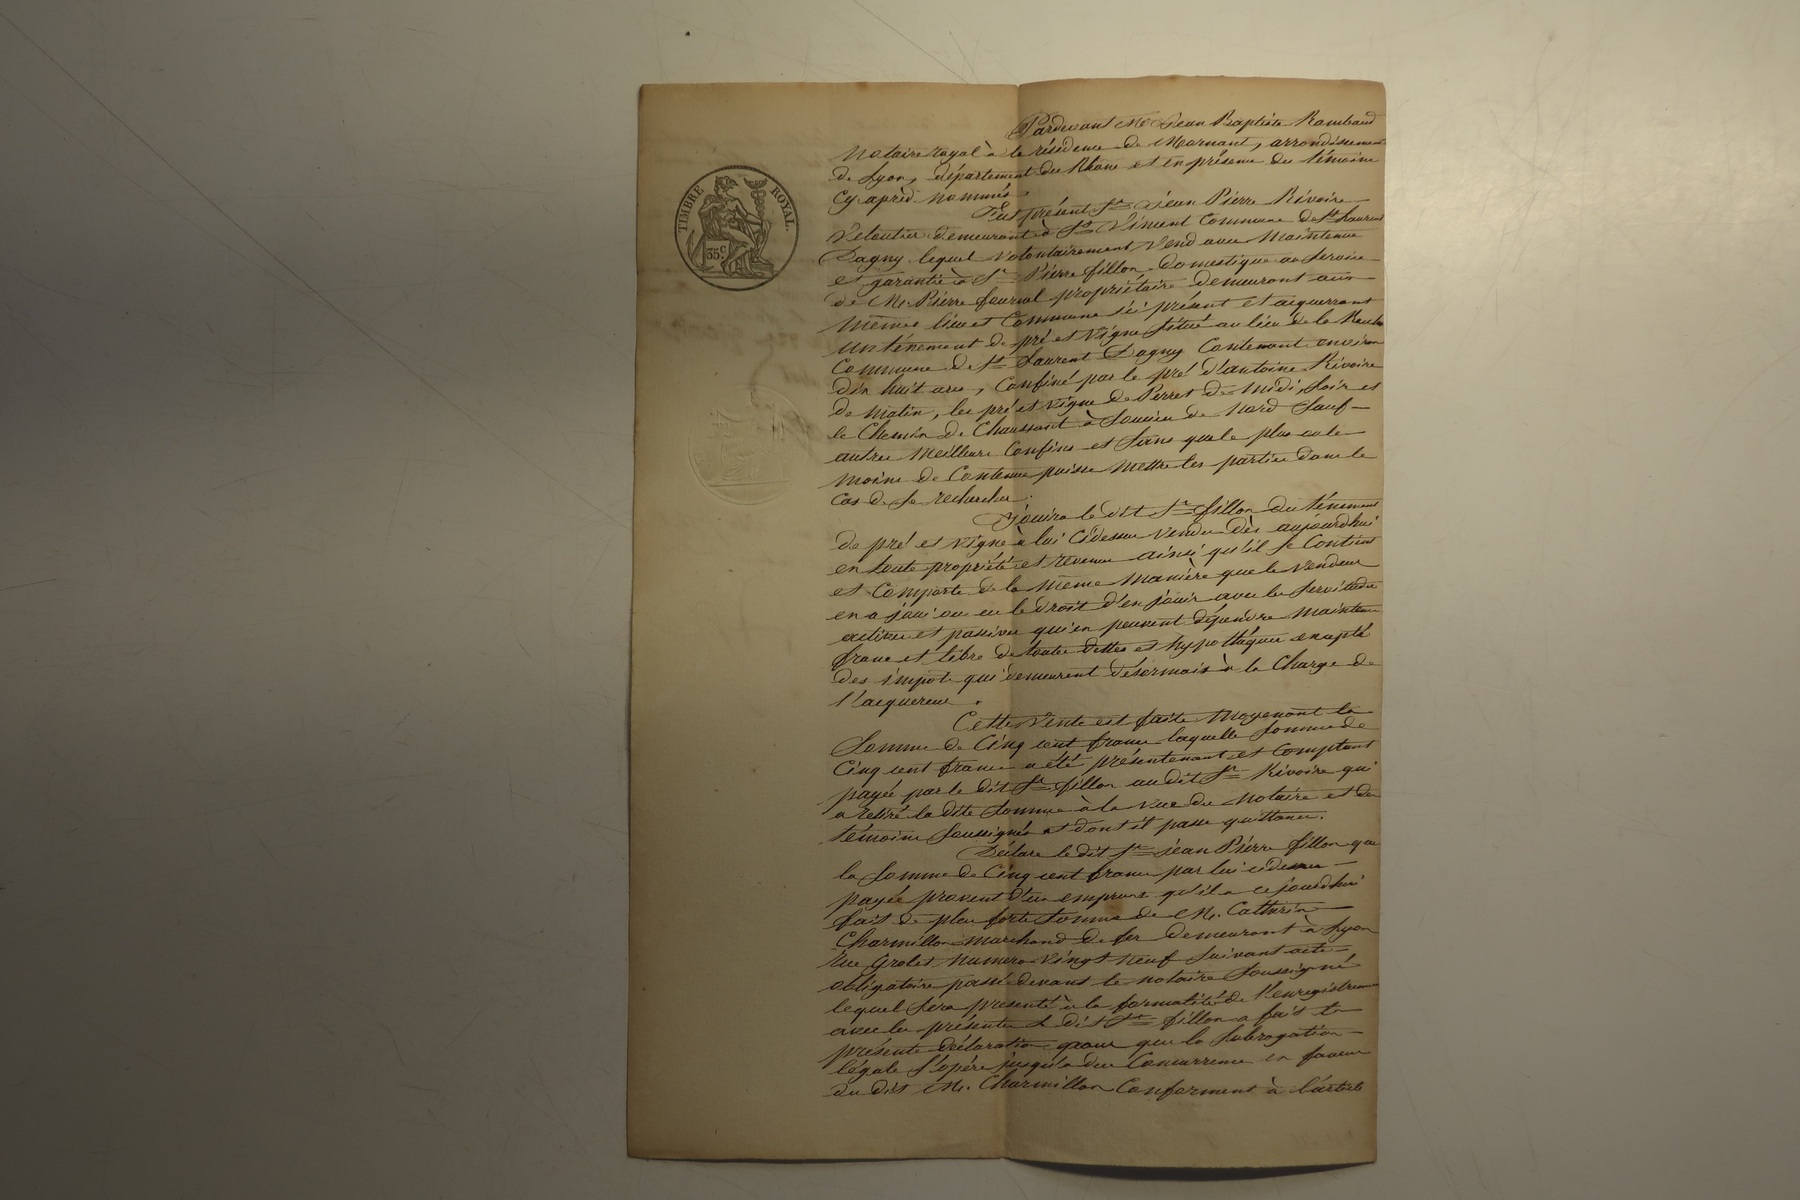 TIMBRE ROYAL.
35 c.
Pardevant Me Jean Baptiste Rambaud
Notaire royal à la résidence de Mornant, arrondissement
de Lyon, département du Rhône et en présence des témoins
cy après nommés.
Fut présent Sr Jean Pierre Rivoire
veloutier demeurant à St Vincent Commune de St Laurent
Dagny lequel volontairement vend avec Maintenue
et garantie à Sr Pierre fillon domestique au service
de Mr Pierre propriétaire demeurant aux
Mêmes lieu et Commune ici présent et aiquerrant
un ténement de pré et vigne situé au lieu de la
Commune de St Laurent Dagny Contenant environ
dix huit ares, Confiné par le pré d'antoine Rivoire
de matin, les pré et vigne de Perret de Midi, Soir et
le Chemin de Chaussant à Soucieu de Nord Sauf
autres Meilleurs Confins et Sans que le plus ou le
moins de Contenue puisse Mettre les parties dans le
cas de se rechercher.
Jouira le dit Sr fillon du ténement
de pré et vigne à lui cidessus vendu dès aujourdhui
en toute propriété et revenus ainsi qu'il se Contient
et Comporte de la Même Manière que le Vendeur
en a joui ou eu le droit d'en jouir avec les servitudes
actives et passives qu'en peuvent dépendre Maintenu
franc et libre de toutes dettes et hypothéques excepté
des impots qui demeurent désormais à la Charge de
l'acquereur.
Cette Vente est faite Moyenant la
Somme de Cinq cent francs laquelle Somme de
Cinq cent francs a été présentement et Comptant
payée par le dit Sr fillon au dit Sr Rivoire qui
a retiré la dite Somme à la vue du Notaire et des
témoins Soussignés et dont il passe quittance.
Déclare le dit Sr Jean Pierre fillon que
la Somme de Cinq cent francs par lui cidessus
payée provient d'un emprunt qu'il a ce jourdhui
fait de plus forte Somme de Mr. Cathrin
Charmillon Marchand de fer demeurant à Lyon
Rue Grolet Numero vingt Neuf Suivant acte
obligatoire passé devant le notaire Soussigné
lequel sera présenté à la formalité de l'enregistrement
avec les présentes Le dit Sr fillon a fait la
présente déclaration pour que la Subrogation
légale s'opère jusqu'a due Concurrence en faveur
du dit Mr. Charmillon Conforment à l'article